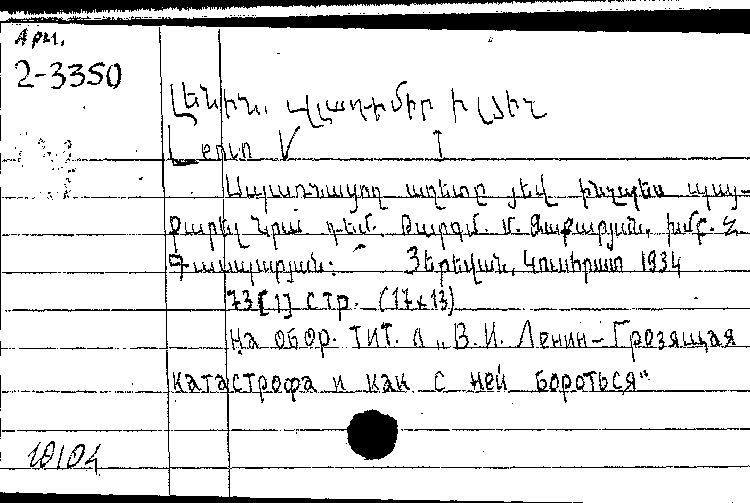 Арм.
2-3350
Լենին, Վլադիմիր Իլյիչ
Սպառնացող աղետը յեվ ինչպես պայ-
քարել նրա դեմ. Թարգմ. Մ. Զաքարյան, խմբ. Հ.
Գասպարյան: Յերեվան, Կուսհրատ 1934
73[1] стр. (17x13)
На обор. тит. л „В.И. Ленин - Грозящая
катастрофа и как с ней бороться"